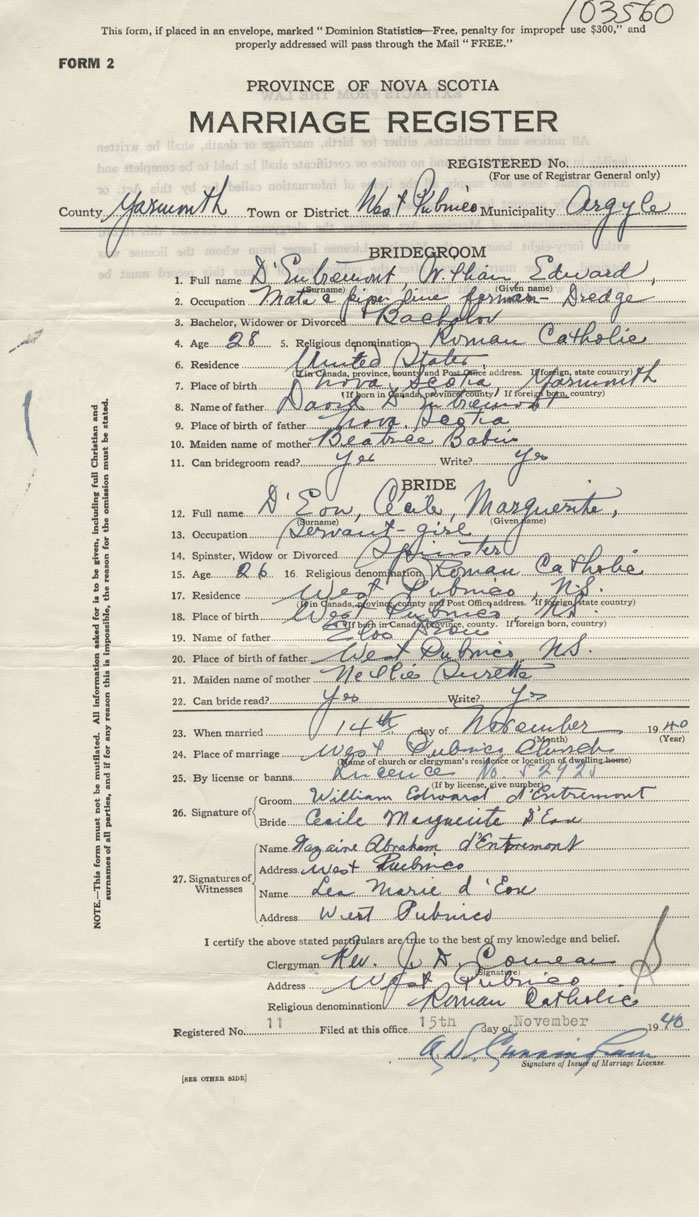 103560
This form, if placed in an envelope, marked "Dominion Statistics—Free, penalty for improper use $300," and
properly addressed will pass through the Mail "FREE."
FORM 2
PROVINCE OF NOVA SCOTIA
MARRIAGE REGISTER
REGISTERED No.
(For use of Registrar General only)
County Yarmouth Town or District West Pubnico Municipality Argyle
BRIDEGROOM
1. Full name D'Entremont William Edward,
(Surname) (Given name)
2. Occupation Mate & pipe line forman - Dredge
3. Bachelor, Widower or Divorced Bachelor
4. Age 28 5. Religious denomination Roman Catholic
6. Residence United States
(If in Canada, province, county and Post Office address. If foreign, state country)
7. Place of birth Nova Scotia, Yarmouth
(If born in Canada, province, county. If foreign born, country)
8. Name of father David D'Entremont
9. Place of birth of father Nova Scotia
10. Maiden name of mother Beatrice Babin
11. Can bridegroom read? Yes Write? Yes
BRIDE
12. Full name D'Eon, Cecile, Marguerite,
(Surname) (Given name)
13. Occupation Servant-girl
14. Spinster, Widow or Divorced Spinster
15. Age 26 16. Religious denomination Roman Catholic
17. Residence West Pubnico, N.S.
(If in Canada, province, county and Post Office address. If foreign, state country)
18. Place of birth West Pubnico, N.S.
(If born in Canada, province, county. If foreign born, country)
19. Name of father D'Eon
20. Place of birth of father West Pubnico N.S.
21. Maiden name of mother Nellie Surette
22. Can bride read? Yes Write? Yes
23. When married 14th day of November 1940
(Month) (Year)
24. Place of marriage West Pubnico Church
(Name of church or clergyman's residence or location of dwelling house)
25. By license or banns Licence No. 52925
(If by license, give number)
26. Signature of
Groom William Edward d'Entremont
Bride Cecile Marguerite D'Eon
27. Signatures of Witnesses
Name Abraham d'Entremont
Address West Pubnico
Name Lea Marie d'Eon
Address West Pubnico
I certify the above stated particulars are true to the best of my knowledge and belief.
Clergyman Rev. J. D. Comeau
(Signature)
Address West Pubnico
Religious denomination Roman Catholic
Registered No. 11 Filed at this office 15th day of November 1940
A D Cunningham
Signature of Issuer of Marriage License.
[SEE OTHER SIDE]
NOTE.—This form must not be mutilated. All information asked for is to be given, including full Christian and
surnames of all parties, and if for any reason this is impossible, the reason for the omission must be stated.